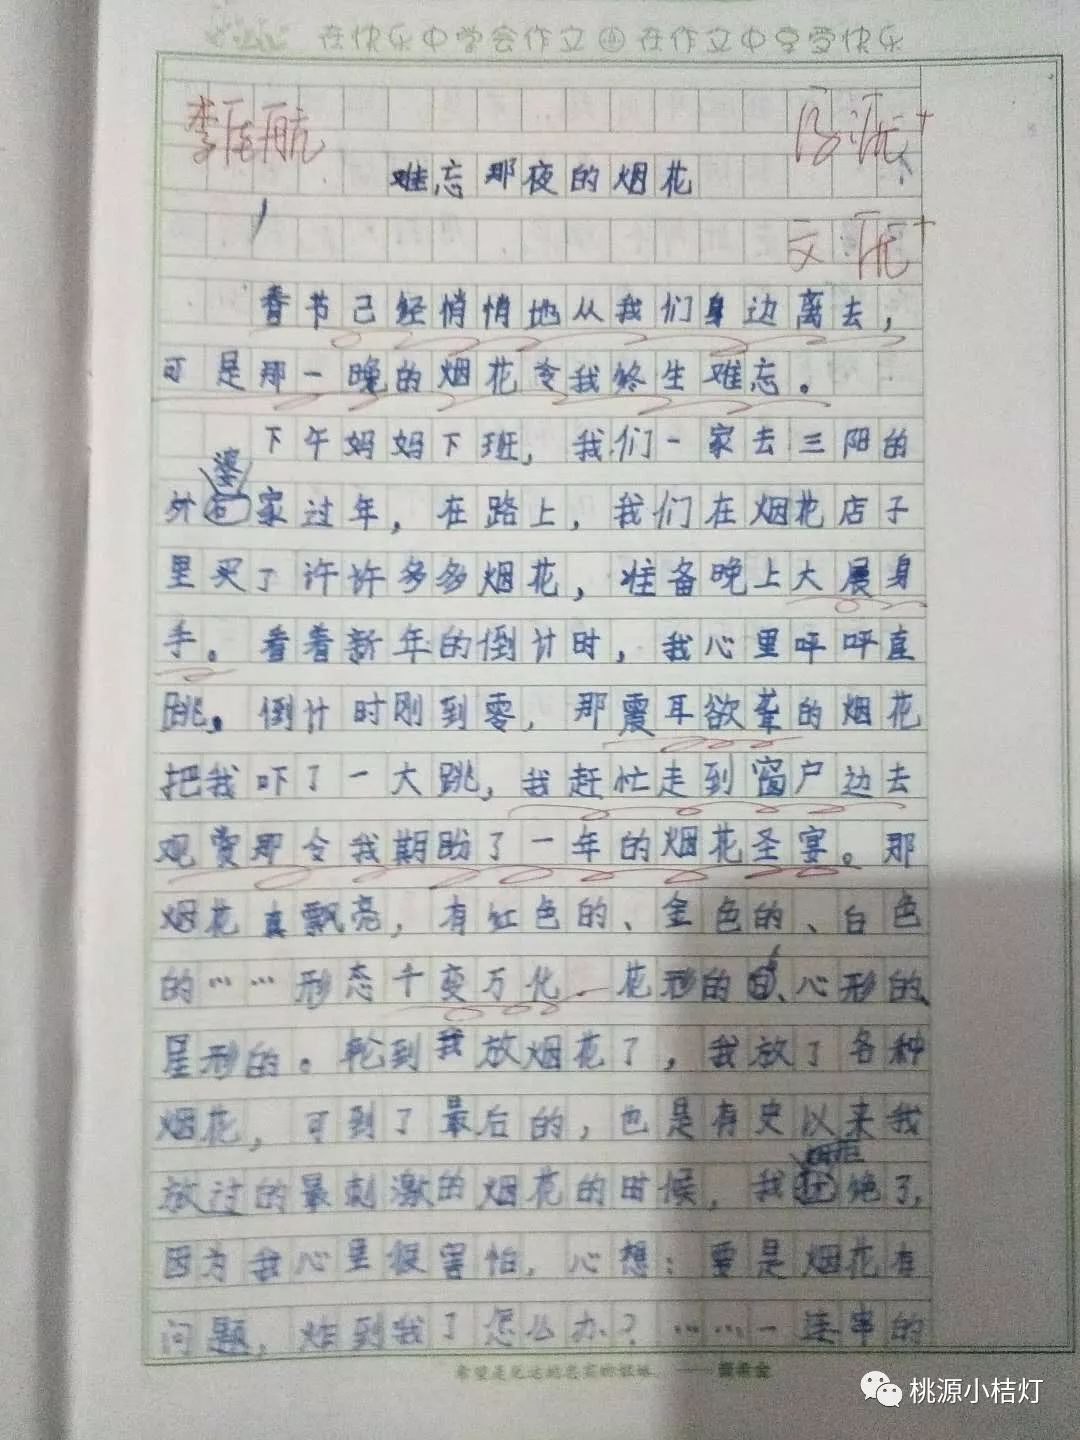 在快乐中学会作文 在作文中享受快乐
难忘那夜的烟花
春节已经悄悄地从我们身边离去，
可是那一晚的烟花令我终生难忘。
下午妈妈下班，我们一家去三阳的
婆
外家过年，在路上，我们在烟花店子
里买了许许多多烟花，准备晚上大展身
手。看着新年的倒计时，我心里呯呯直
跳。倒计时刚到零，那震耳欲聋的烟花
把我吓了一大跳，我赶忙走到窗户边去
观赏那令我期盼了一年的烟花圣宴。那
烟花真飘亮，有红色的、金色的、白色
的……形态千变万化．花形的、心形的、
星形的。轮到我放烟花了，我放了各种
烟花，可到了最后的，也是有史以来我
放过的最刺激的烟花的时候，我了，
因为我心里很害怕，心想：要是烟花有
问题，炸到我了怎么办？……一连串的
桃源小桔灯